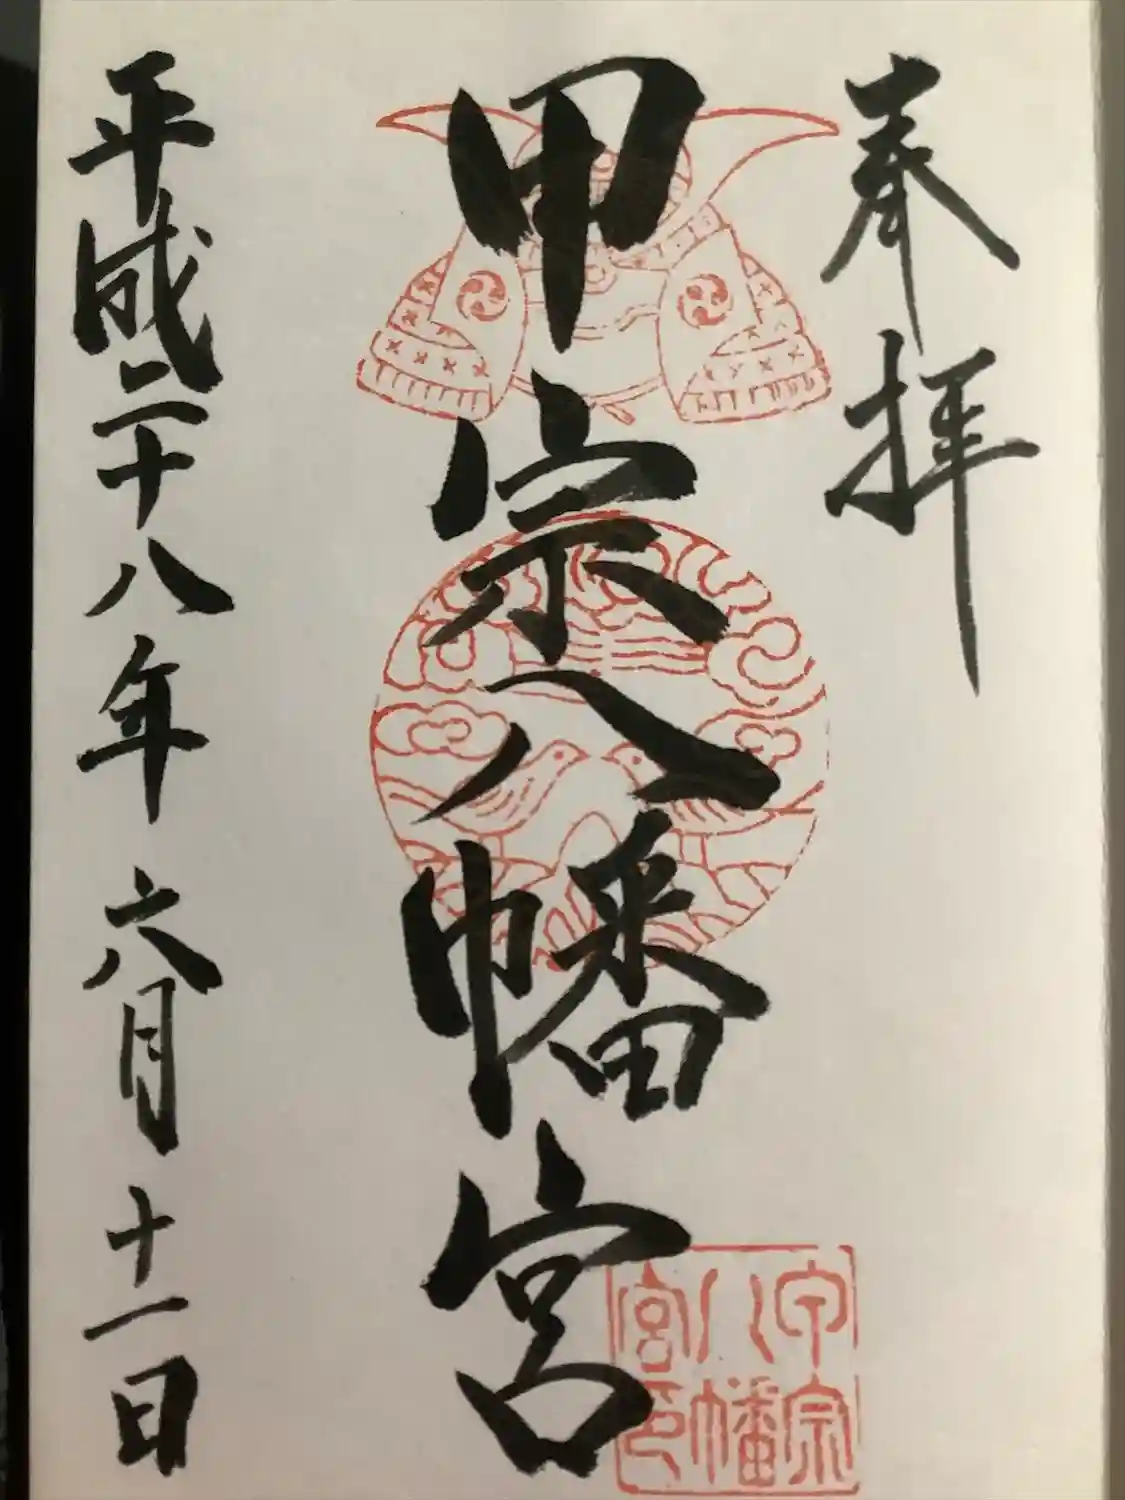 奉拝
甲宗八幡宮
甲宗
八幡
宮印
平成二十八年六月十一日